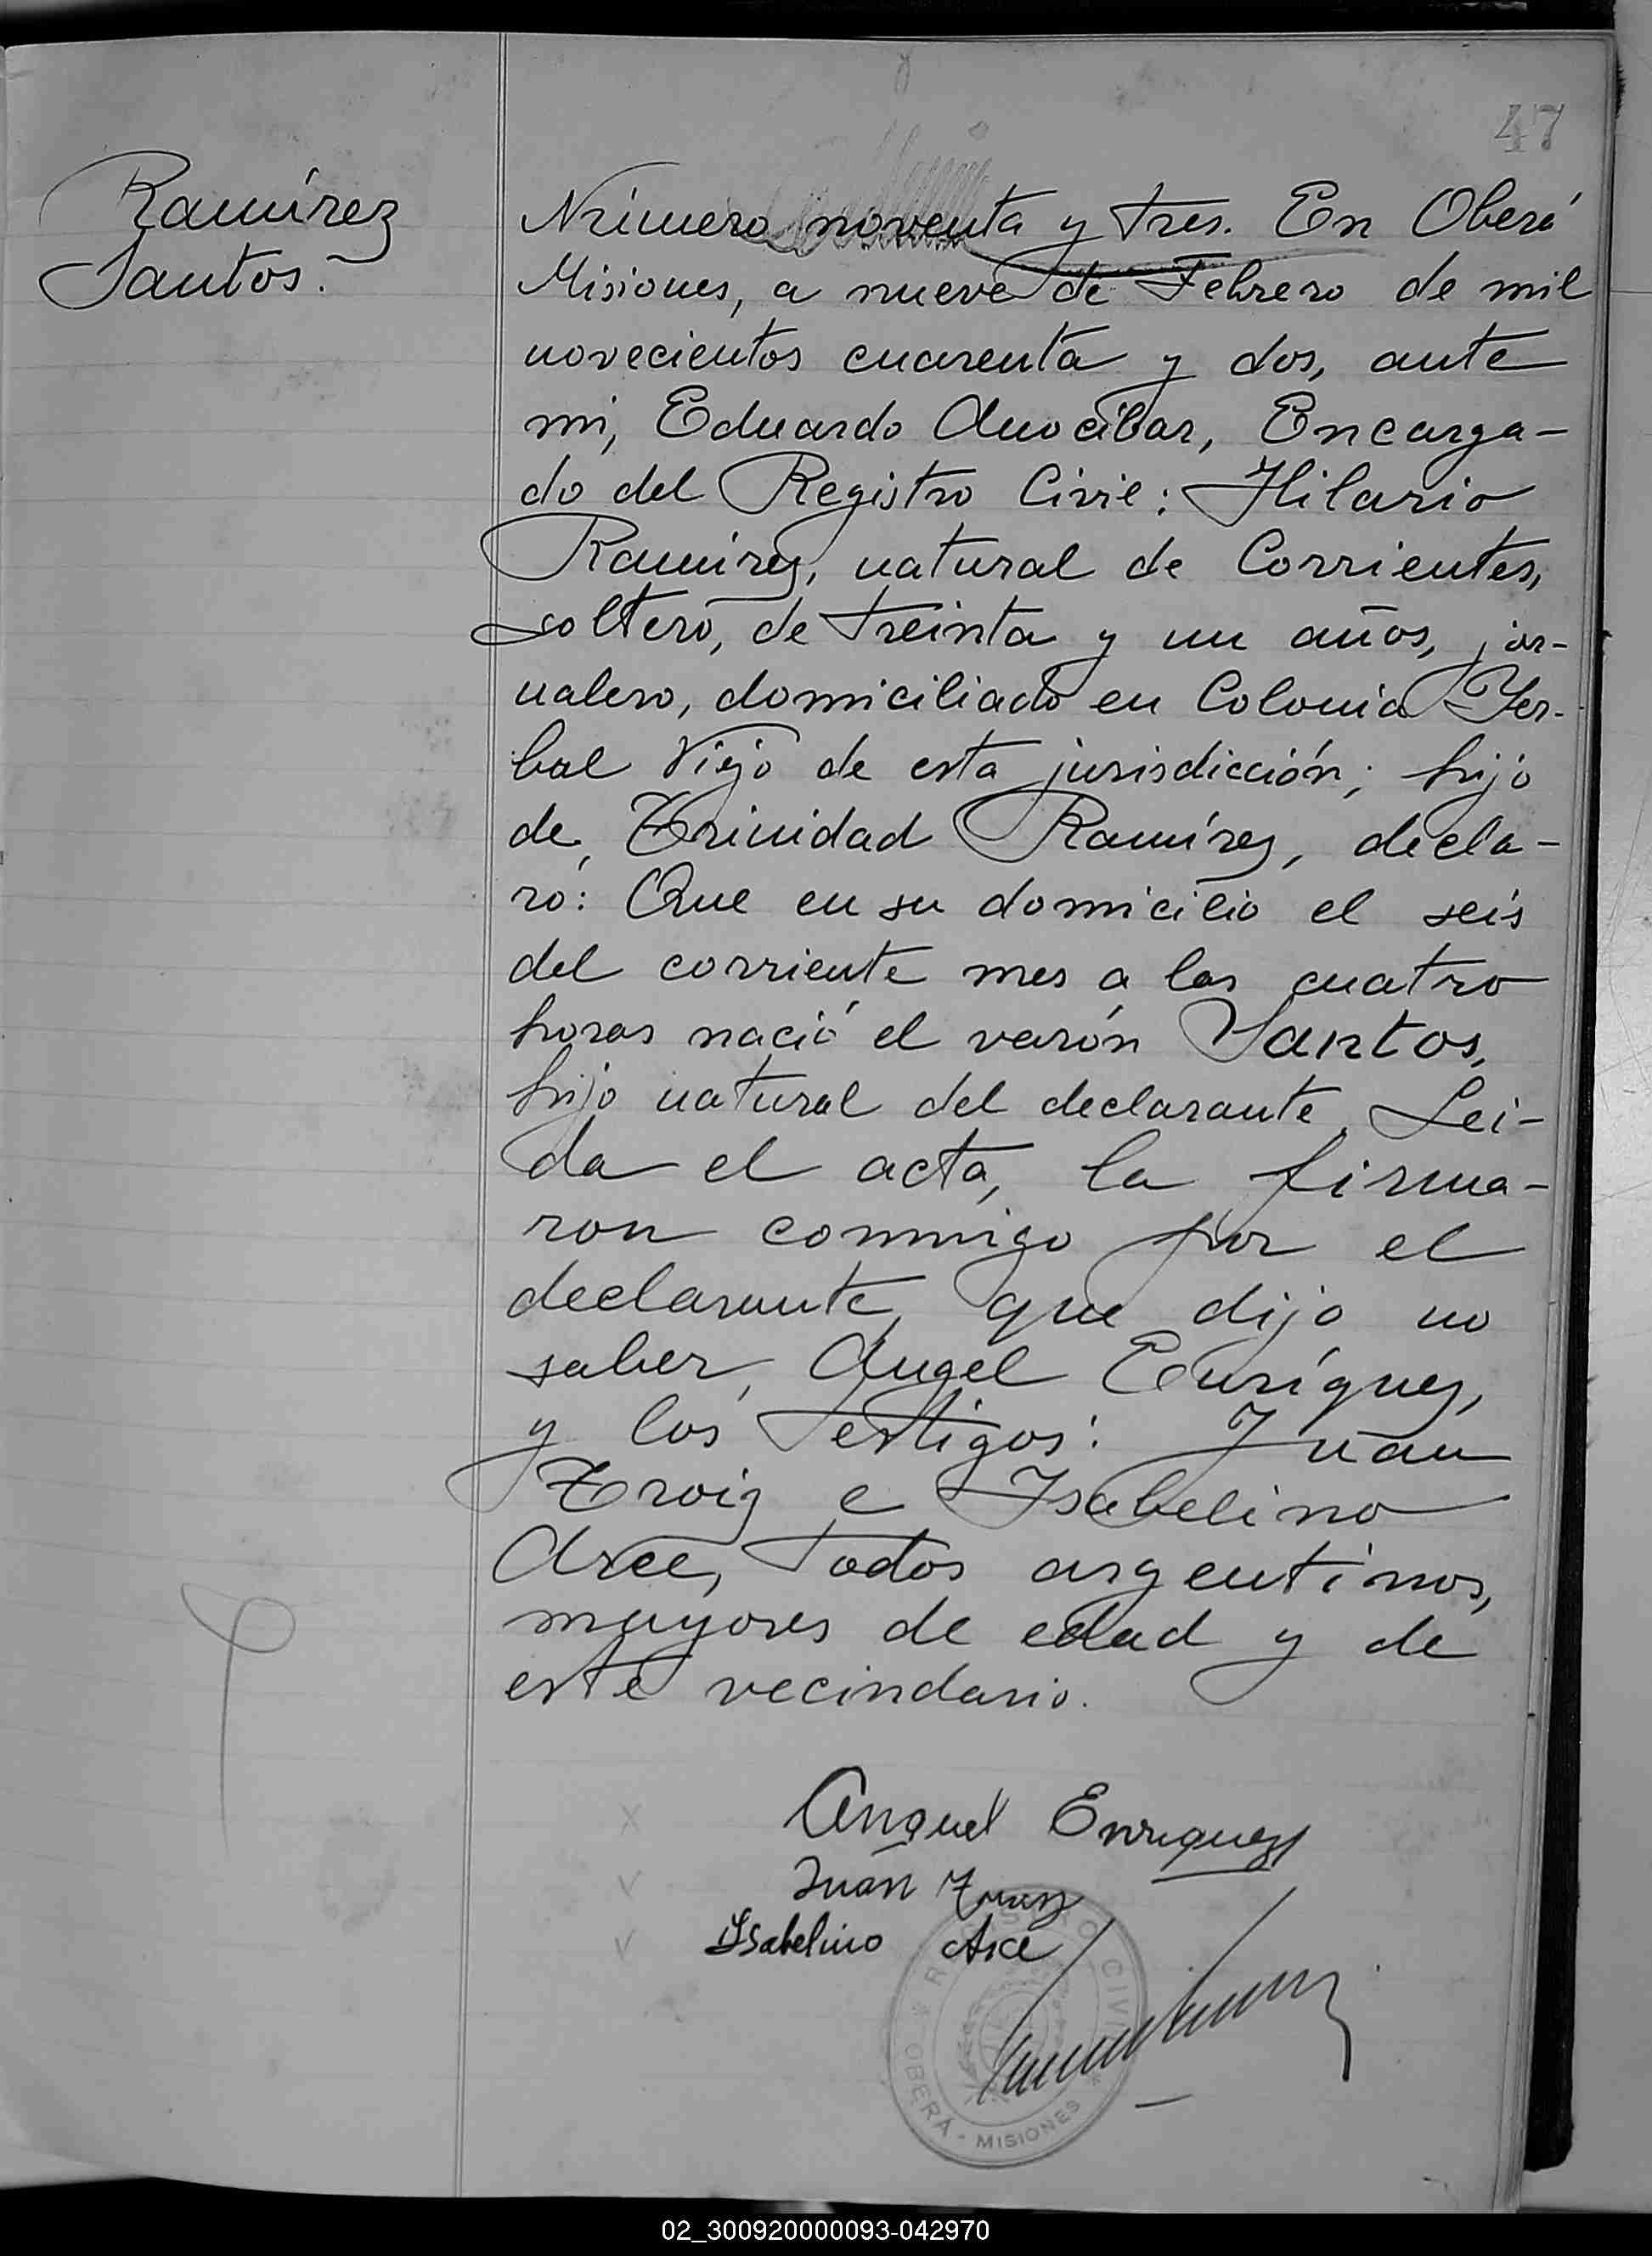 47
Ramírez
Santos.
Número noventa y tres. En Oberá
Misiones, a nueve de Febrero de mil
novecientos cuarenta y dos, ante
mi, Eduardo Anocibar, Encarga-
do del Registro Civil: Hilario
Ramírez, natural de Corrientes,
soltero, de treinta y un años, jor-
nalero, domiciliado en Colonia Yer-
bal Viejo de esta jurisdicción; hijo
de, Trinidad Ramírez, decla-
ró: Que en su domicilio el seis
del corriente mes a las cuatro
horas nació el varón Santos,
hijo natural del declarante. Lei-
da el acta, la firma-
ron conmigo por el
declarante, que dijo no
saber, Angel Enríquez,
y los testigos: Juan
Troiz e Isabelino
Arce, todos argentinos,
mayores de edad y de
este vecindario.
Anguel Enriquez
Juan
Isabelino Arce
REGISTRO CIVIL
OBERÁ - MISIONES
02_300920000093-042970